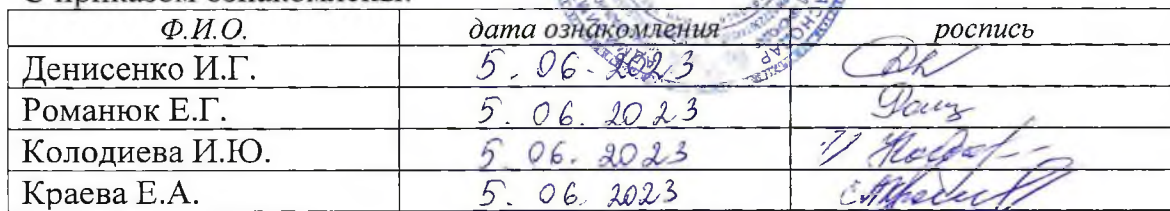 С приказом ознакомлены:
Ф.И.О. дата ознакомления роспись
Денисенко И.Г. 5.06.2023
Романюк Е.Г. 5.06.2023
Колодиева И.Ю. 5 06.2023
Краева Е.А. 5.06.2023